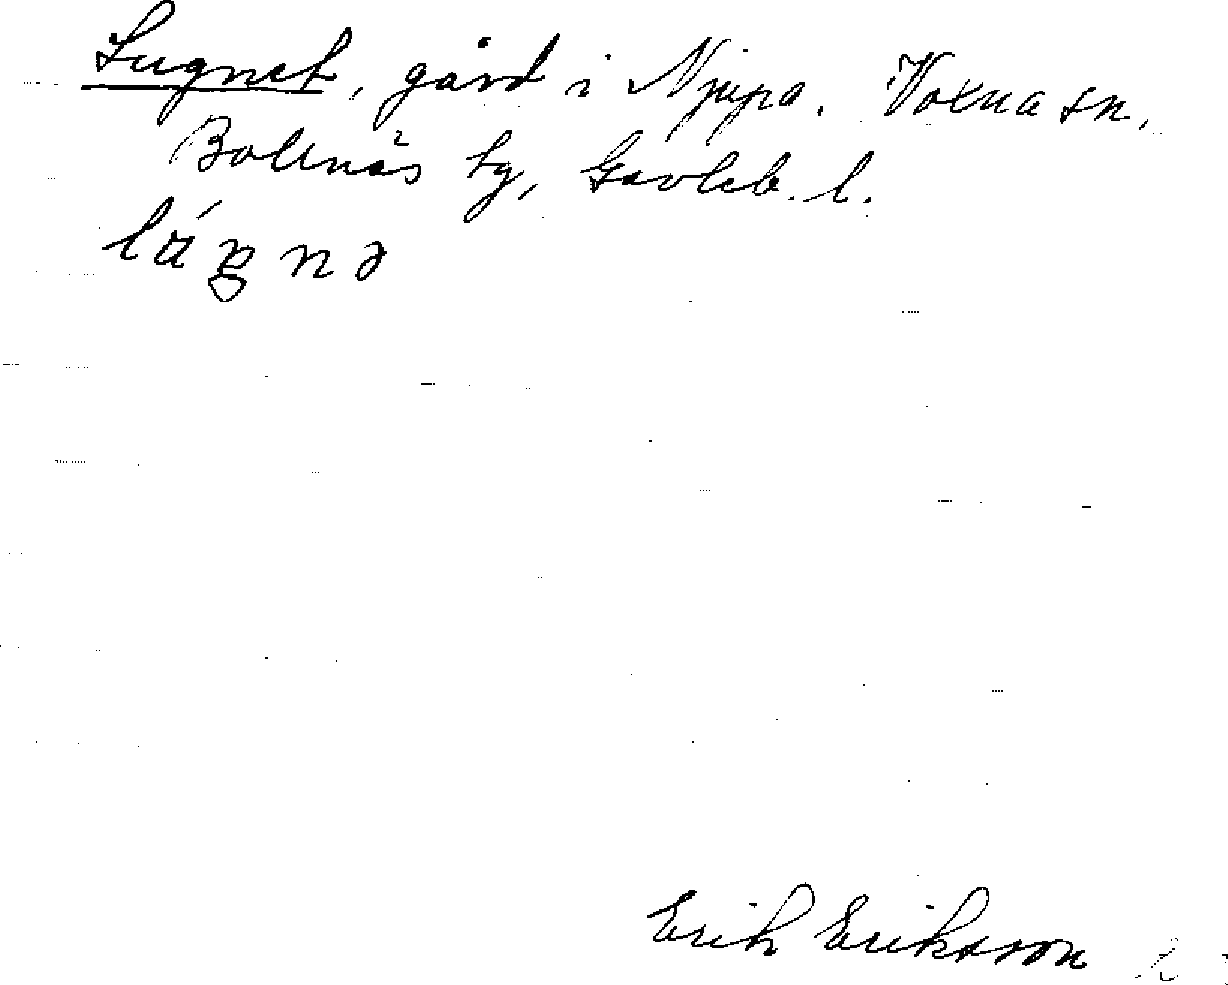 Lugnet, gård i Njupa. Voxna sn,
Bollnäs tg, Gävleb. l.
Erik Eriksson